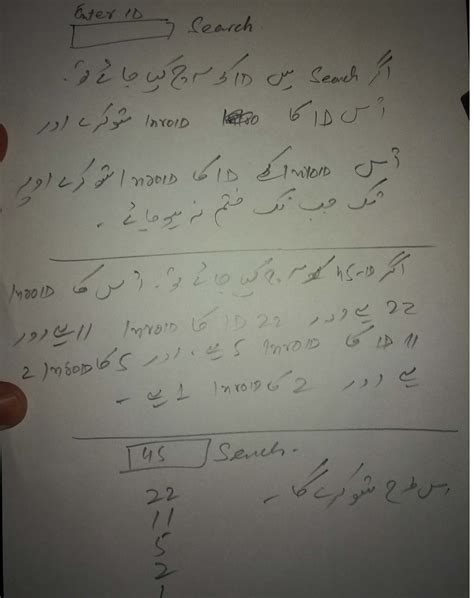 Enter ID
Search
اگر Search میں ID کو سرچ کیا جائے تو۔
اُس ID کا InroID شو کرے اور
اُس InroID کے ID کا InroID شو کرے اوپر
تک جب تک ختم نہ ہو جائے۔
اگر 45-ID کو سرچ کیا جائے تو۔ اُس کا InroID
22 ہے اور 22 ID کا InroID 11 ہے اور
11 ID کا InroID 5 ہے، اور 5 کا InroID 2
ہے اور 2 کا InroID 1 ہے۔
45 Search.
22 اس طرح شو کرے گا۔
11
5
2
1